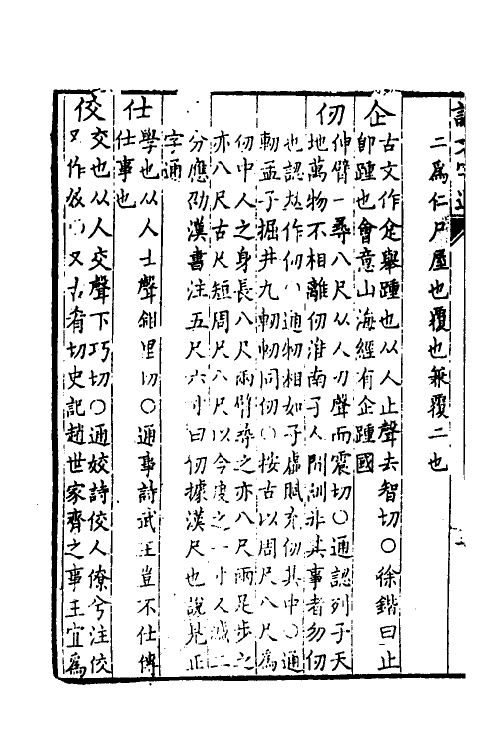 二爲仁尸屋也覆也兼覆二也
企
古文作𠈮舉踵也从人止聲去智切〇徐鍇曰止
卽踵也會意山海經有企踵國
仞
伸臂一尋八尺从人刃聲而震切〇通認列子天
地萬物不相離仞淮南子人間訓非其事者勿仞
也認並作仞 通牣相如子虛賦充仞其中〇通
軔孟子掘井九軔軔同仞〇按古以周尺八尺爲
仞中人之身長八尺兩臂尋之亦八尺兩足步之
亦八尺古尺短周尺八尺以今 之 寸人 二
分應劭漢書注五尺六寸曰仞據漢尺也說見正
字通
仕
學也从人士聲鉏里切〇通事詩武王豈不仕傳
仕事也
佼
交也从人交聲下巧切〇通姣詩佼人僚兮注佼
又作姣〇又古肴切史記趙世家齊之事王宜爲